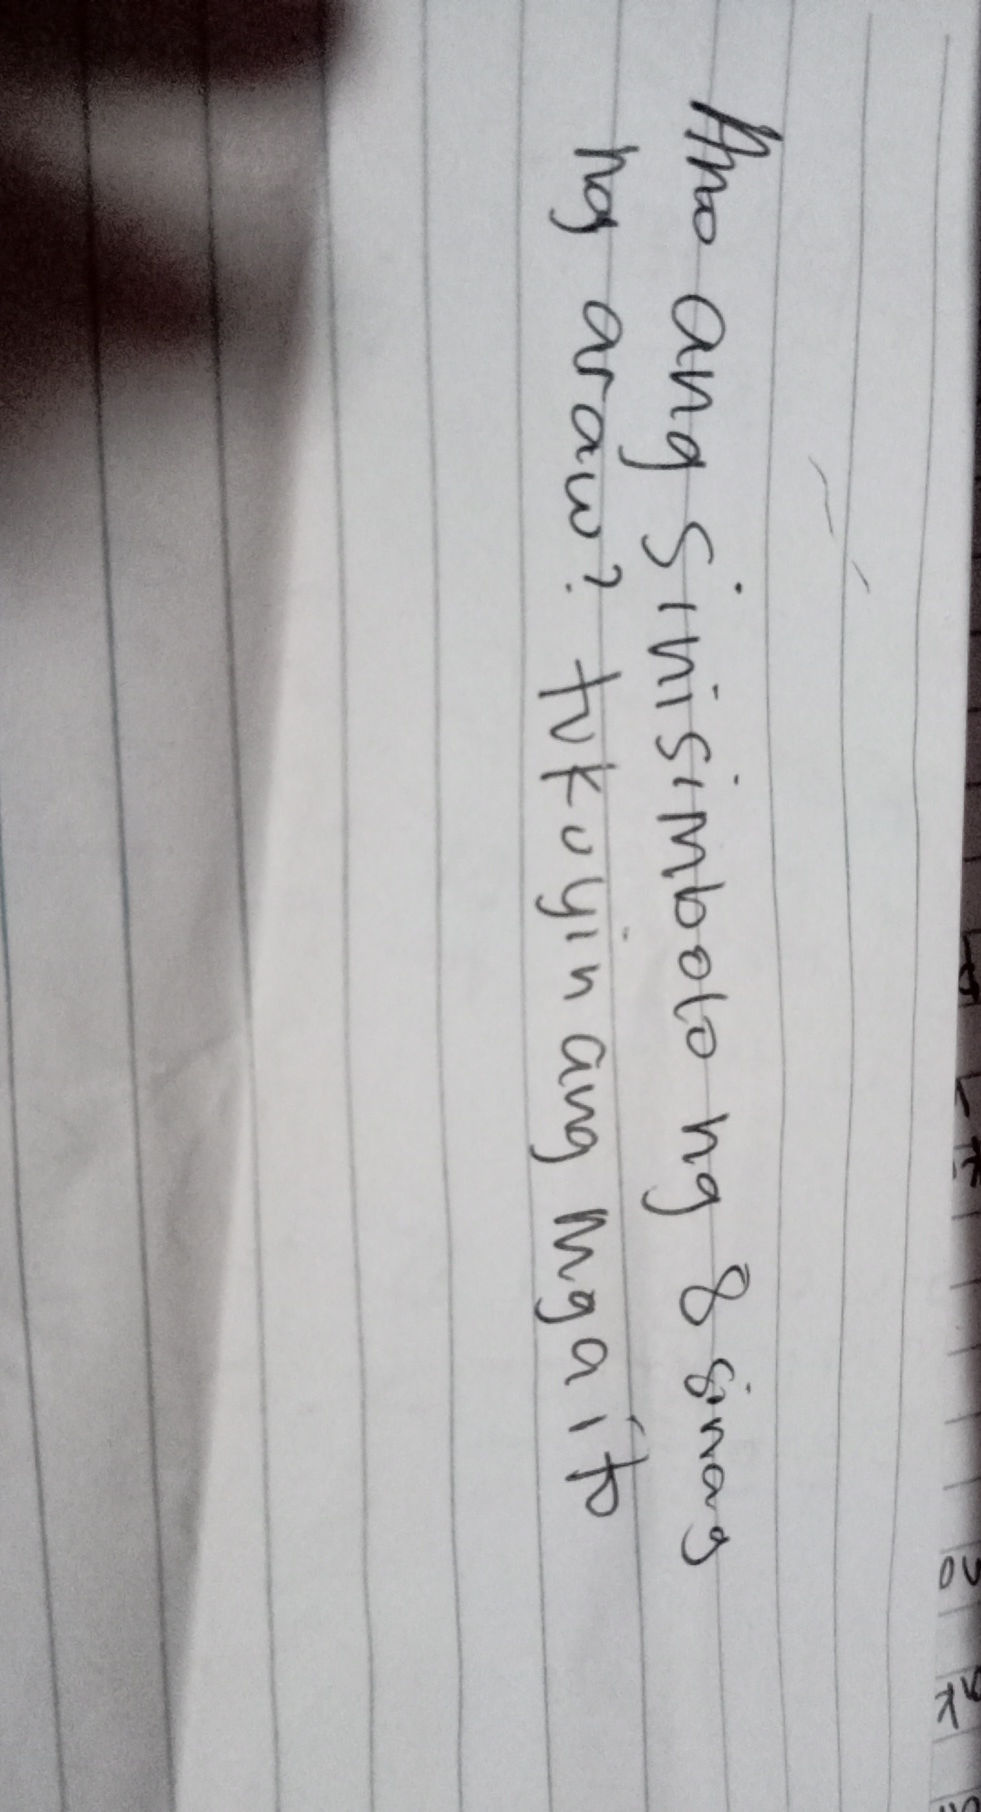 Ano ang sinisimbolo ng 8 sinag
ng araw? tukuyin ang mga ito